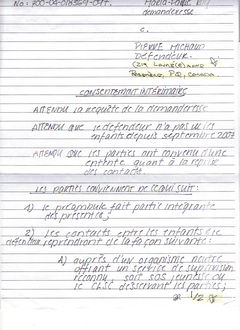 No: 700-04-018369-097.
demanderesse
c.
PIERRE MICHAUD
Défendeur.
P.Q, CANADA.
CONSENTEMENT INTÉRIMAIRE
ATTENDU la requête de la demanderesse
ATTENDU que le défendeur n'a pas vu les
enfants depuis septembre 2007
ATTENDU que les parties ont convenu d'une
entente quant à la reprise
des contacts.
LES PARTIES CONVIENNENT DE CE QUI SUIT:
1) le préambule fait partie intégrante
des présentes;
2) Les contacts entre les enfants et le
défendeur reprendront de la façon suivante:
a) auprès d'un organisme neutre
offrant un service de supervision
reconnu, soit SOS jeunesse ou
le CLSC desservant les parties;
1/2